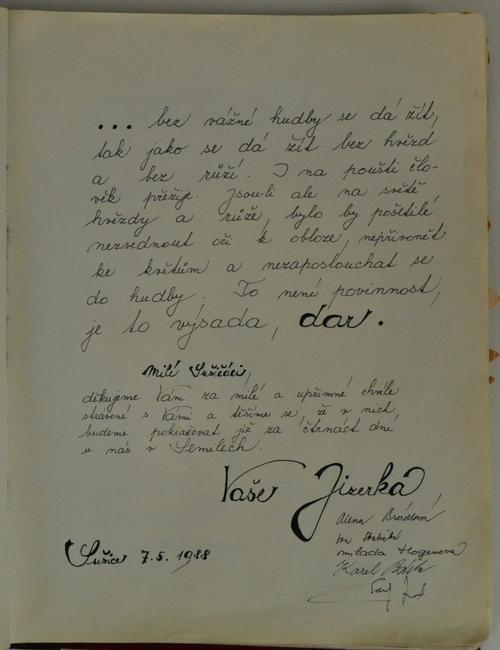 ... bez vážné hudby se dá žít,
tak jako se dá žít bez hvězd
a bez růží. I na poušti člo-
věk přežije. Jsou-li ale na světě
hvězdy a růže, bylo by pošetilé
nezvednout oči k obloze, nepřivonět
ke květům a nezaposlouchat se
do hudby. To není povinnost,
je to výsada, dar.
Milí Sušičáci,
děkujeme Vám za milé a upřímné chvíle
strávené s Vámi a těšíme se, že v nich
budeme pokračovat již za čtrnáct dní
u nás v Semilech.
Vaše Jizerka
Alena Brádlová
milada Hogenová
Karel
Sušice 7.5.1988